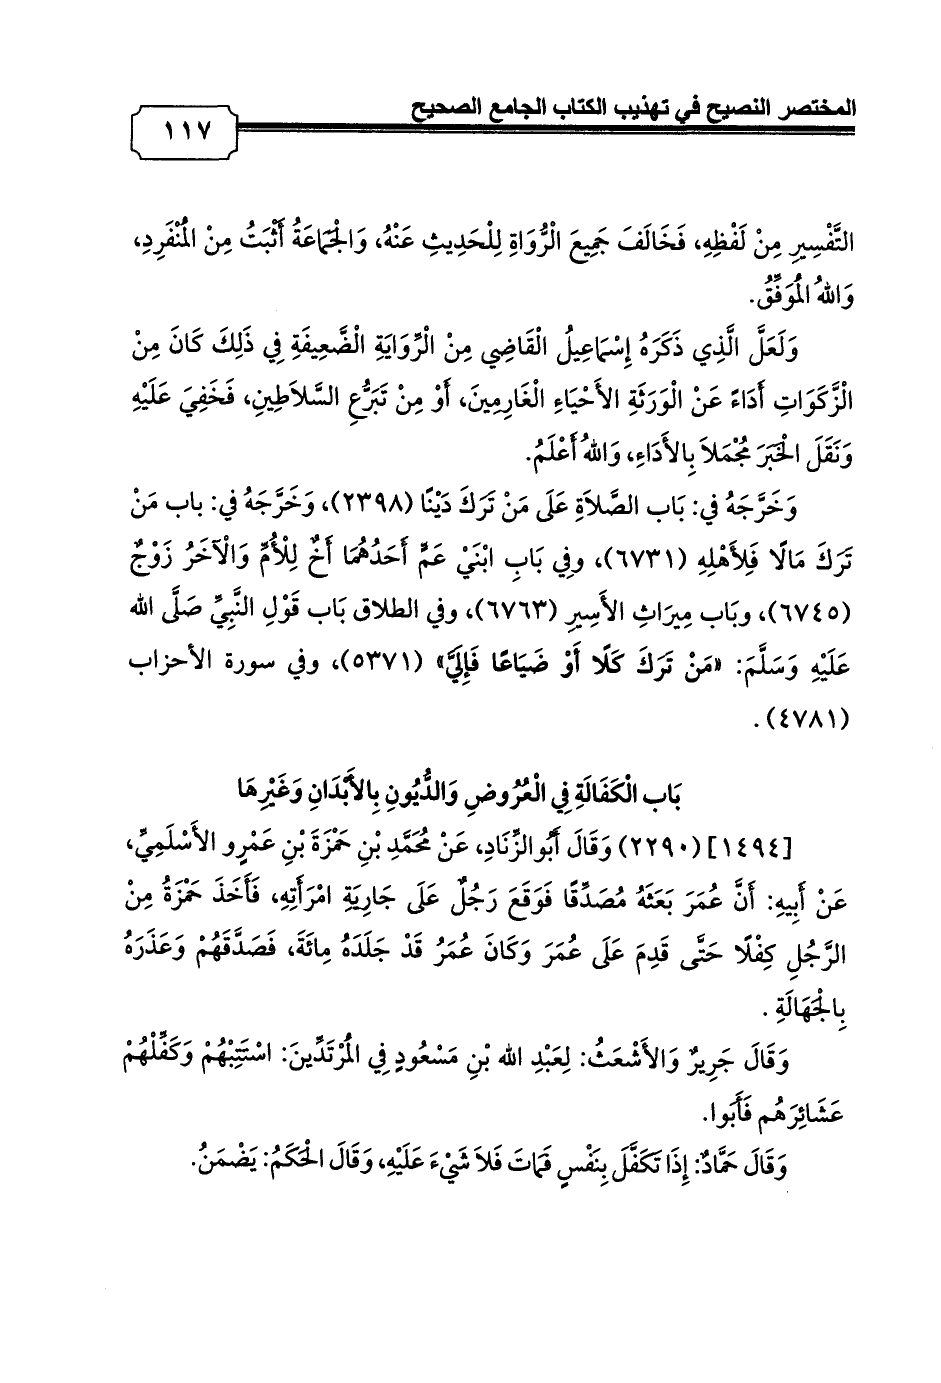 المختصر النصيح في تهذيب الكتاب الجامع الصحيح
١١٧
التَّفْسِيرِ مِنْ لَفْظِهِ، فَخَالَفَ جَمِيعَ الْرُّوَاةِ لِلْحَدِيثِ عَنْهُ، وَالْجَمَاعَةُ أَثْبَتُ مِنْ الْمُنْفَرِدِ،
وَالله الْمُوَفِّقُ.
وَلَعَلَّ الَّذِي ذَكَرَهُ إِسْمَاعِيلُ الْقَاضِي مِنْ الْرِّوَايَةِ الْضَّعِيفَةِ فِي ذَلِكَ كَانَ مِنْ
الْزَّكَوَاتِ أَدَاءً عَنْ الْوَرَثَةِ الأَحْيَاءِ الْغَارِمِينَ، أَوْ مِنْ تَبَرُّعِ السَّلاَطِينِ، فَخَفِيَ عَلَيْهِ
وَنَقَلَ الْخَبَرَ مُجْمَلاً بِالأَدَاءِ، وَالله أَعْلَمُ.
وَخَرَّجَهُ فِي: بَاب الصَّلاَةِ عَلَى مَنْ تَرَكَ دَيْنًا (٢٣٩٨)، وَخَرَّجَهُ فِي: باب مَنْ
تَرَكَ مَالًا فَلِأَهْلِهِ (٦٧٣١)، وفِي بَابِ ابْنَيْ عَمٍّ أَحَدُهُمَا أَخٌ لِلْأُمِّ وَالْآخَرُ زَوْجٌ
(٦٧٤٥)، وبَاب مِيرَاثِ الأَسِيرِ (٦٧٦٣)، وفي الطلاق بَاب قَوْلِ النَّبِيِّ صَلَّى الله
عَلَيْهِ وَسَلَّمَ: «مَنْ تَرَكَ كَلًا أَوْ ضَيَاعًا فَإِلَيَّ» (٥٣٧١)، وفي سورة الأحزاب
(٤٧٨١).
بَاب الْكَفَالَةِ فِي الْعُرُوضِ وَالدُّيُونِ بِالأَبْدَانِ وَغَيْرِهَا
[١٤٩٤] (٢٢٩٠) وَقَالَ أَبُوالزِّنَادِ، عَنْ مُحَمَّدِ بْنِ حَمْزَةَ بْنِ عَمْرٍو الأَسْلَمِيِّ،
عَنْ أَبِيهِ: أَنَّ عُمَرَ بَعَثَهُ مُصَدِّقًا فَوَقَعَ رَجُلٌ عَلَى جَارِيَةِ امْرَأَتِهِ، فَأَخَذَ حَمْزَةُ مِنْ
الرَّجُلِ كِفْلًا حَتَّى قَدِمَ عَلَى عُمَرَ وَكَانَ عُمَرُ قَدْ جَلَدَهُ مِائَةً، فَصَدَّقَهُمْ وَعَذَرَهُ
بِالْجَهَالَةِ .
وَقَالَ جَرِيرٌ وَالأَشْعَثُ: لِعَبْدِ الله بْنِ مَسْعُودٍ فِي الْمُرْتَدِّينَ: اسْتَتِبْهُمْ وَكَفِّلْهُمْ
عَشَائِرَهُم فَأَبَوا.
وَقَالَ حَمَّادٌ: إِذَا تَكَفَّلَ بِنَفْسٍ فَمَاتَ فَلاَ شَيْءَ عَلَيْهِ، وَقَالَ الْحَكَمُ: يَضْمَنُ.